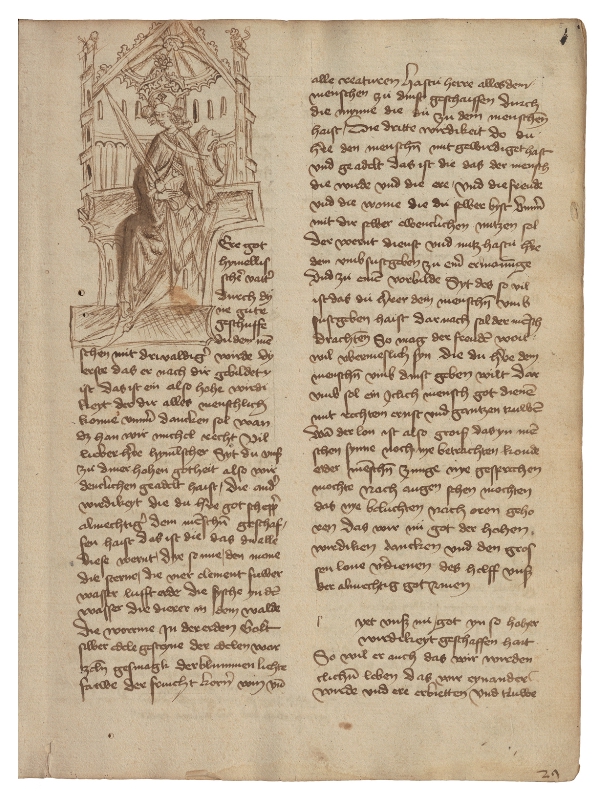 Ere got
hymellis
scher vatter
durch dy
ne gute
geschuffe
du den mē
schen mit drivaldiger wirde dy
erste das er nach dir gebildet
ist das ist ein also hohe wirdi
kleyt der dir alles menschlich
konne nummer dancken sol wan
dz han wir michel recht vil
lieber here hymlscher Syt du vnß
zu diner hohen gotheit also wir
deuclichen geadelt haist / die ander
wirdikeyt die du here got scheppfer
almechtiger dem menschen geschaf/
fen haist das ist die das du alle
diese wernt / die sonne / den mone
die sterne / die vier element fuwer
wasser lufft erde die fysche in dem
wasser die dierer in dem walde
die worme in der erden Golt
silber edele gesteyne der edelen wor
zeln gesmagk der blummen lichte
farwe der frucht korn win vnd
alle creaturen hastu herre alles dem
menschen zu dinst geschaffen durch
die mynne die du zu dem menschen
haist / Die dritte wirdikeit do du
here den menschen mit gewirdiget hast
vnd geadelt das ist die das der mensch
die wirde vnd die ere / vnd die freude
vnd die wonne die du selber byst vmmer
mit dir selber ewenclichen nutzen sol
der wernt dienst vnd nutz hastu here
dem vmb sust geben zu einer ermanunge
vnd zu eime vorbilde Syt des so vil
ist das du herer dem menschen vmb
sust geben haist dar nach sol der mensch
drachten So mag der freuden woil
vil vberneslich syn die du here dem
menschen vmb dinst geben wilt dar
vmb sol ein iclich mensch got dienen
mit rechten ernst vnd gantzen truwen
wan der lon ist also groiß das yn men
schen synne noch nye betrachten konde
oder menschen zunge nye gesprechen
mochte nach augen sehen mochten
das nye beluchten nach oren geho
ren Das wir nu got der hohen
wirdikeit dancken vnd den gros
sen lone verdienen des helff vnß
der almechtig got amen
yet vnß nu got yn so hoher
wirdikeyt geschaffen hait
So wil er auch das wir wirden
clichen leben das wir eynander
wirde vnd ere erbietten vnd truwe
29